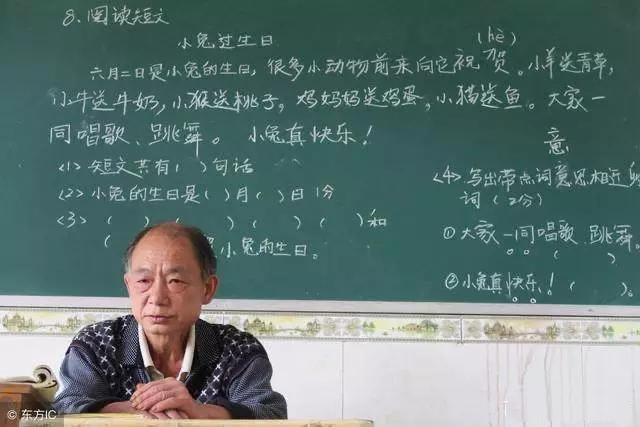 8. 阅读短文
小兔过生日
(hè)
六月二日是小兔的生日,很多小动物前来向它祝贺。小羊送青草,
小牛送牛奶,小猴送桃子,鸡妈妈送鸡蛋,小猫送鱼。大家一
同唱歌、跳舞。 小兔真快乐!
<1> 短文共有( )句话
<2> 小兔的生日是( )月( )日 1分
<3> ( ) ( ) ( ) ( )和
( 小兔的生日。
意
<4> 写出带点词意思相近的
词(2分)
① 大家一同唱歌、跳舞。
( )
② 小兔真快乐!( )。
© 东方IC